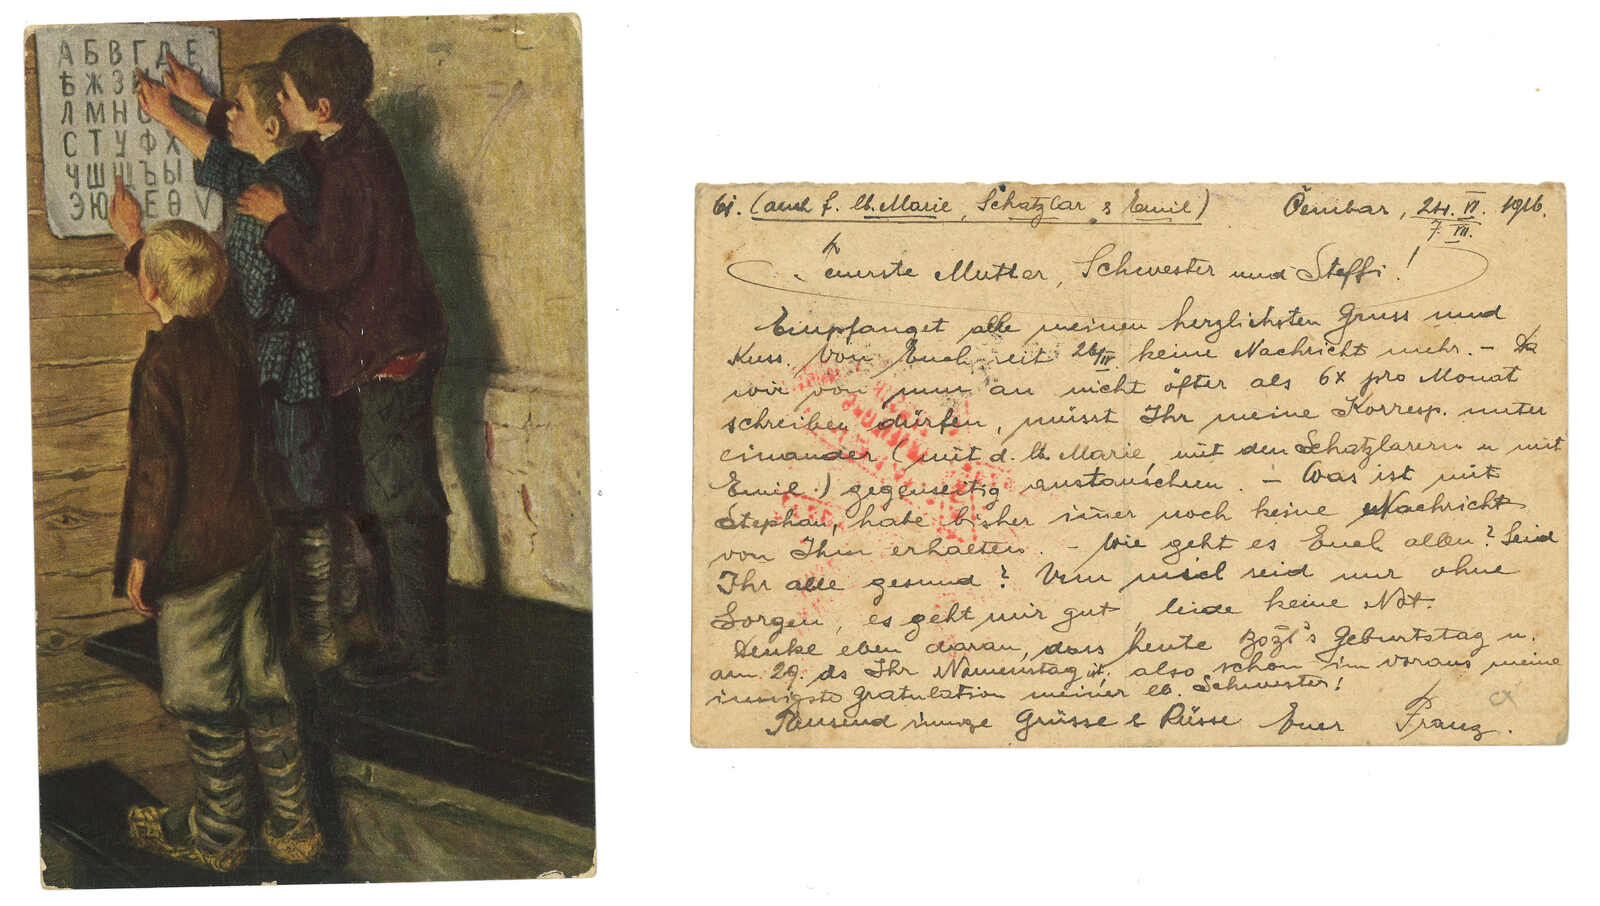 А Б В Г Д Е
Ѣ Ж З И
Л М Н О
С Т У Ф Х
Ч Ш Щ Ъ Ы
Э Ю Е Ѳ V
61. (auch f. lb. Marie, Schatzlar & Emil) Čembar, 24. VI. 1916.
7. VII.
Teuerste Mutter, Schwester und Steffi!
Empfanget alle meinen herzlichsten Gruss und
Kuss. Von Euch seit 26/IV keine Nachricht mehr. – Da
wir von nun an nicht öfter als 6x pro Monat
schreiben dürfen, müsst Ihr meine Korresp. unter
einander (mit d. lb. Marie mit den Schatzlarern u mit
Emil) gegenseitig austauschen. – Was ist mit
Stephan, habe bisher im̄er noch keine Nachricht
von Ihm erhalten. – Wie geht es Euch allen? Seid
Ihr alle gesund? Um mich seid nur ohne
Sorgen, es geht mir gut, leide keine Not.
Denke eben daran, dass heute Geburtstag u.
am 29. ds Ihr Namenstag ist, also schon im voraus meine
innigste Gratulation meiner lb. Schwester!
Tausend innige Grüsse & Küsse Euer Franz.